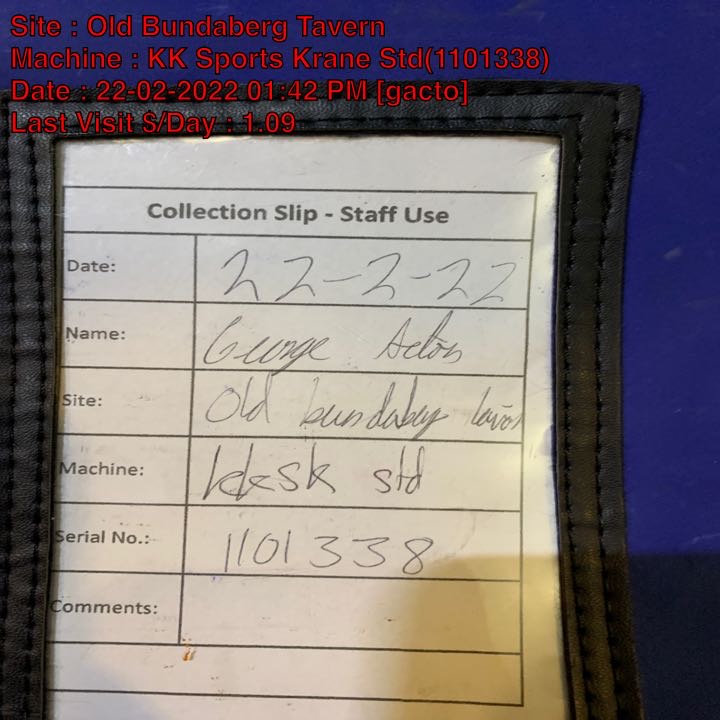 Site : Old Bundaberg Tavern
Machine : KK Sports Krane Std(1101338)
Date : 22-02-2022 01:42 PM [gacto]
Last Visit $/Day : 1.09
Collection Slip - Staff Use
Date: 22-2-22
Name: George Acton
Site: Old bundaberg
Machine: kkSK std
Serial No.: 1101338
Comments: